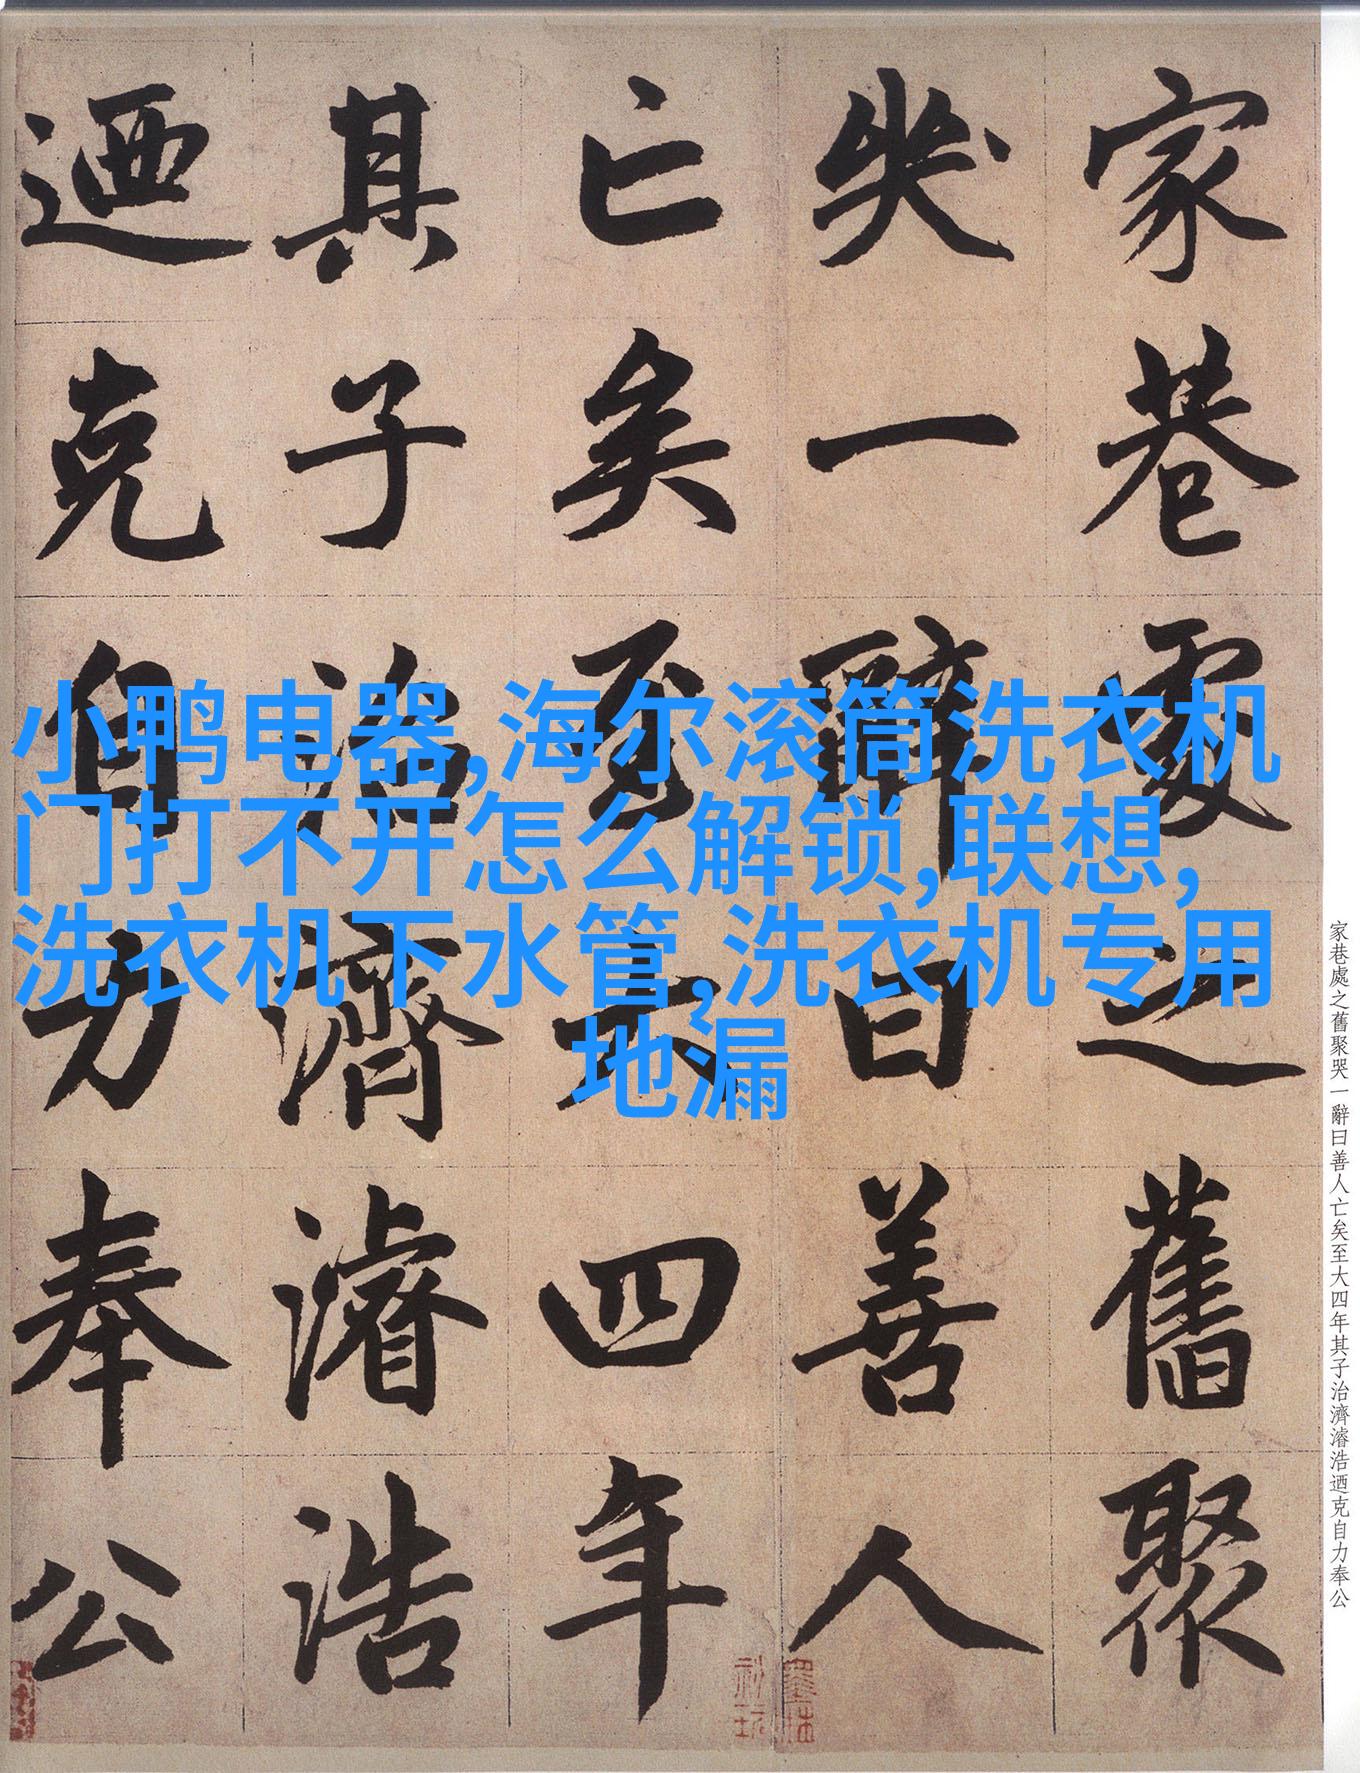 家巷處之舊聚
哭一辭曰善人
亡矣至大四年
其子治濟濬浩
迺克自力奉公
小鸭电器,海尔滚筒洗衣机
门打不开怎么解锁,联想,
洗衣机下水管,洗衣机专用
地漏
家巷處之舊聚哭一辭曰善人亡矣至大四年其子治濟濬浩迺克自力奉公